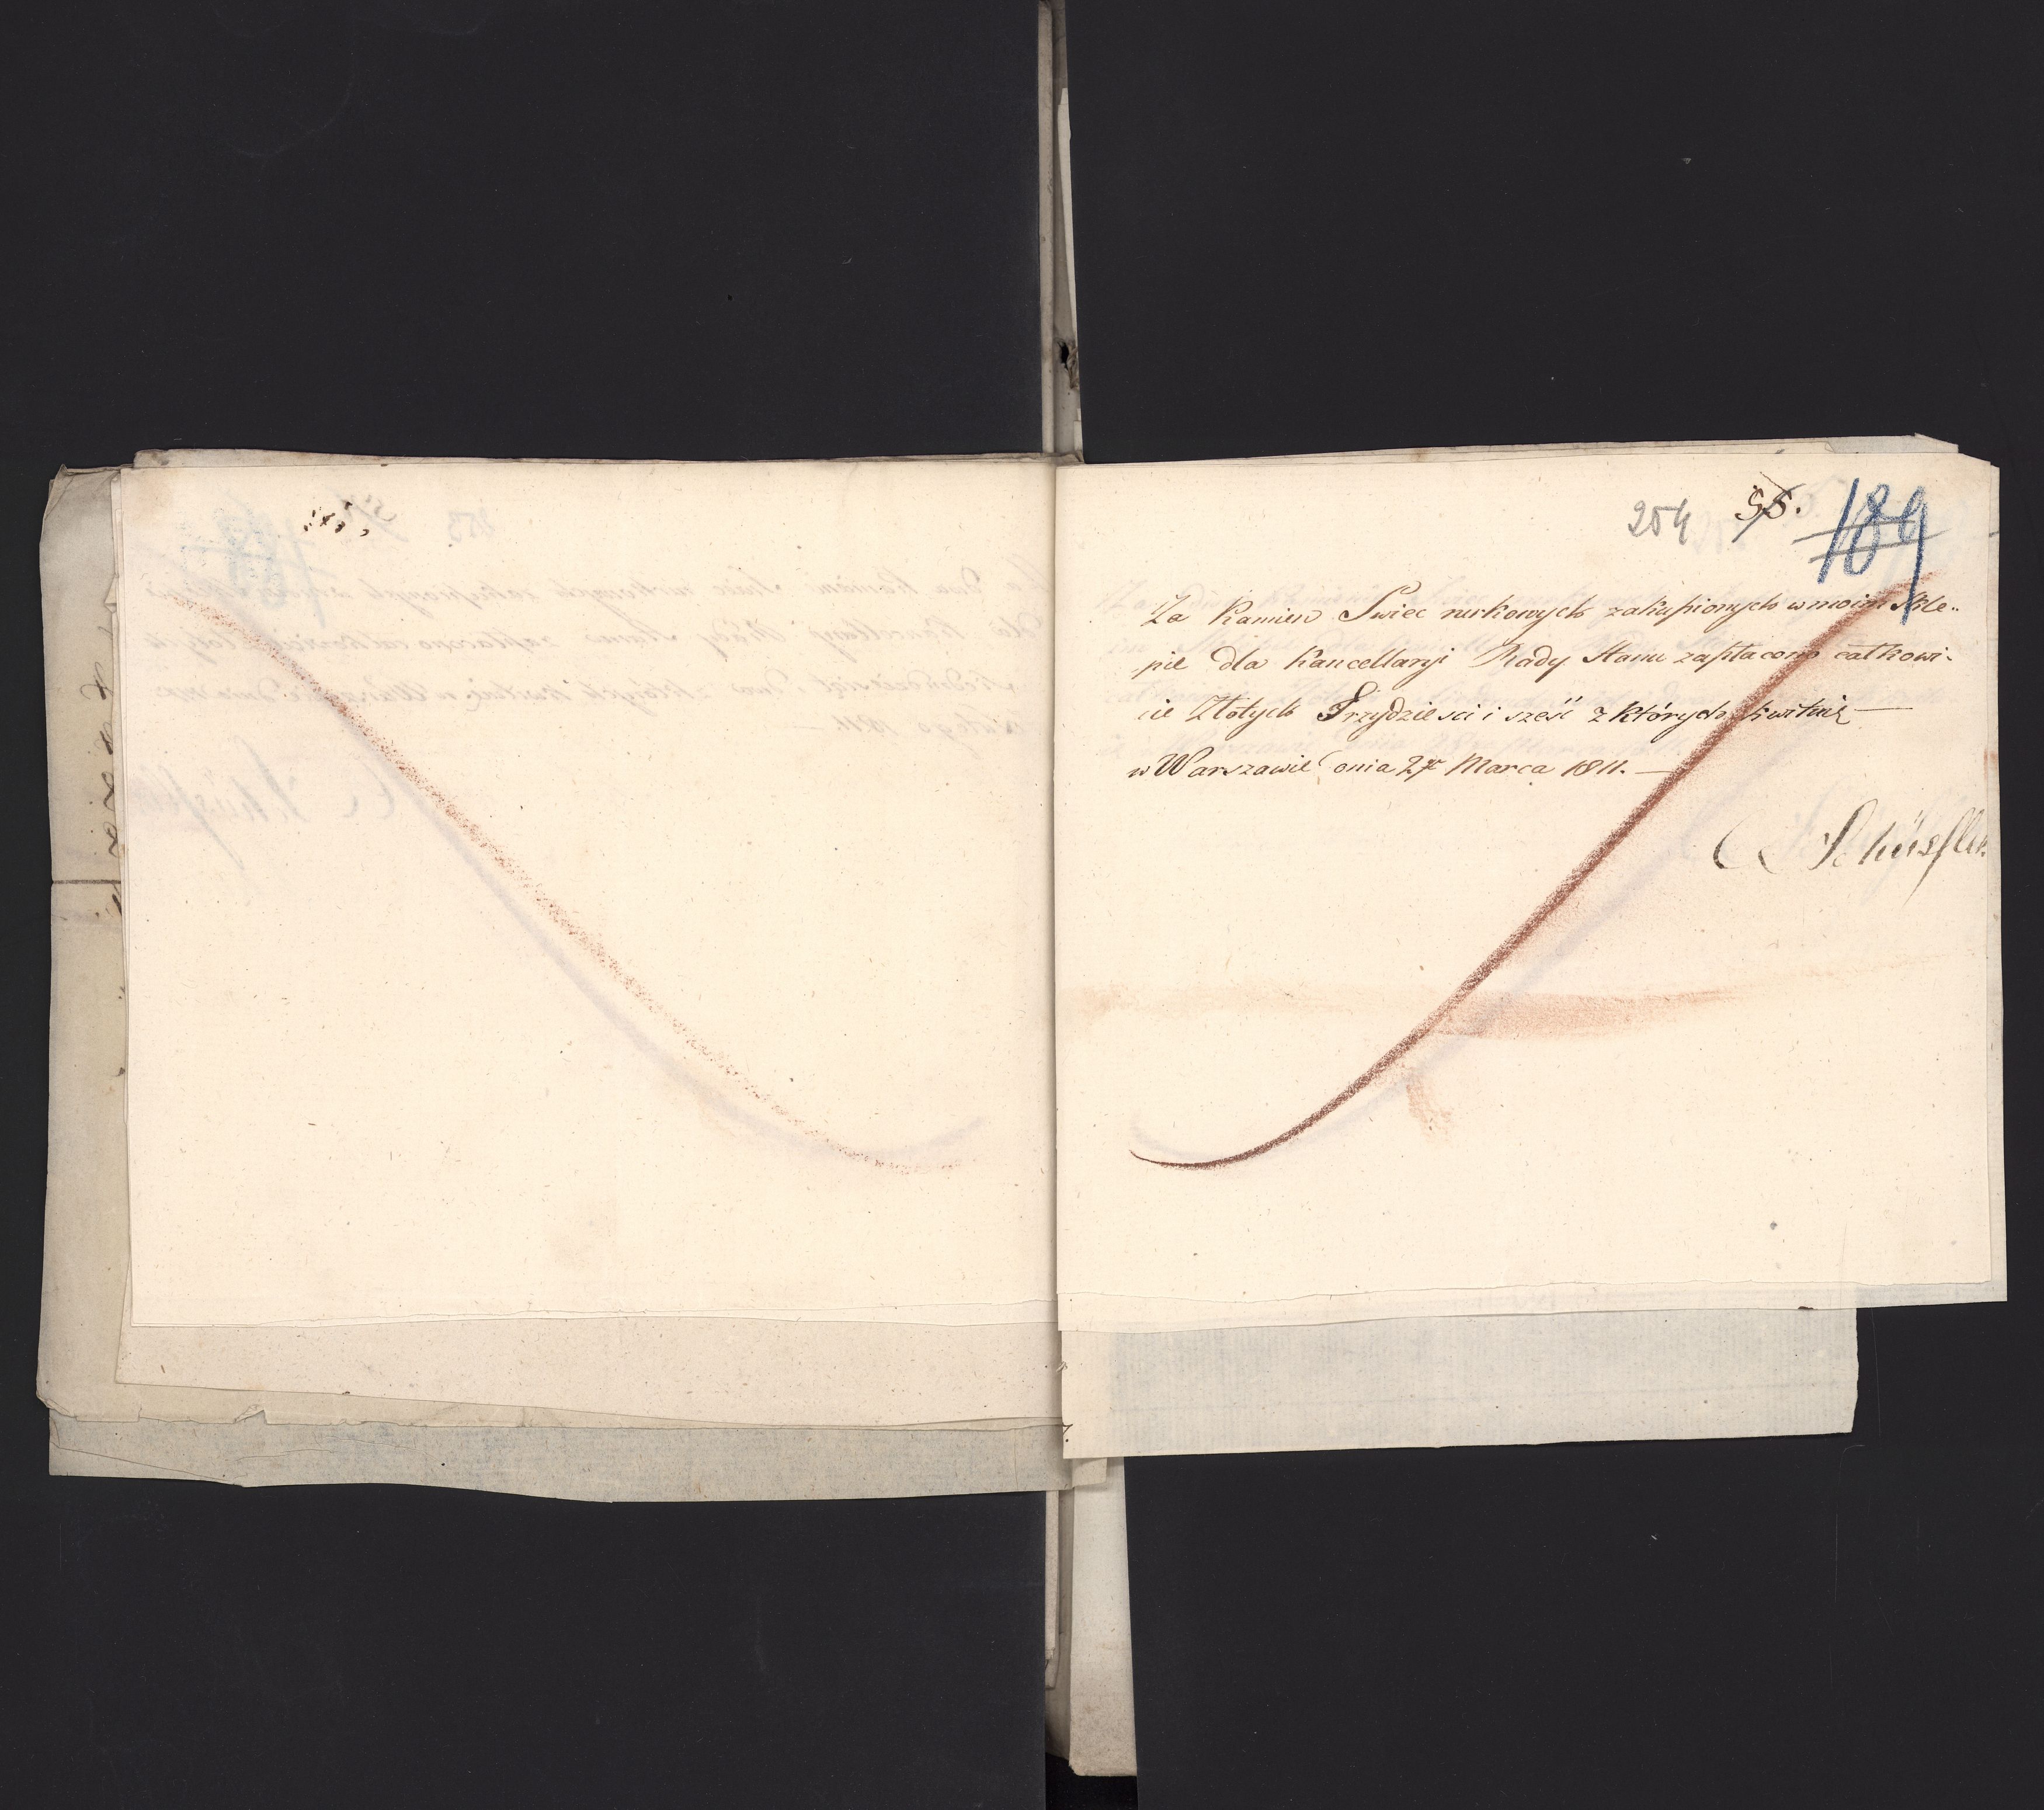 254 55. 189
Za Kamień Swiec nurkowych zakupionych w moim Skle„
pie dla Kancellaryi Rady Stanu zapłacono całkowi„
cie Złotych Trzydziesci i sześć z których kwituię —
w Warszawie dnia 2go Marca 1811. —